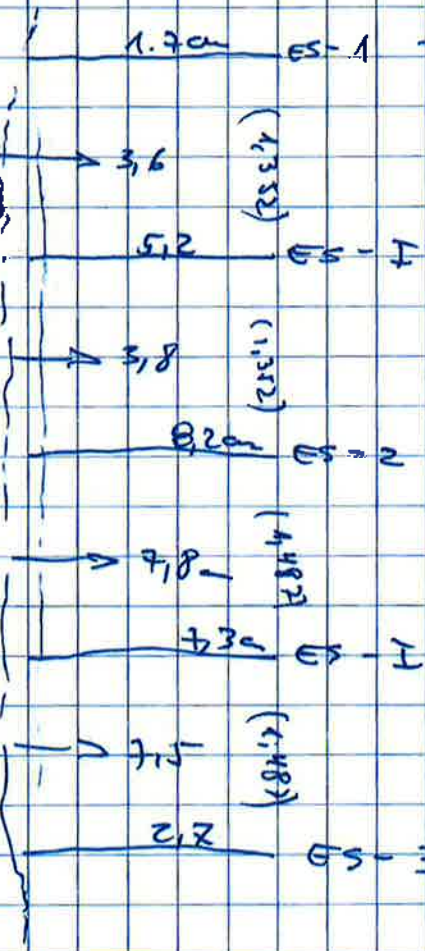 1.7cm ES-1
3,6 (1,352)
5,2 ES-I
3,8 (1,352)
8,2cm ES-2
7,8 (1,487)
7,3 ES-I
7,5 (1,487)
2,7 ES-